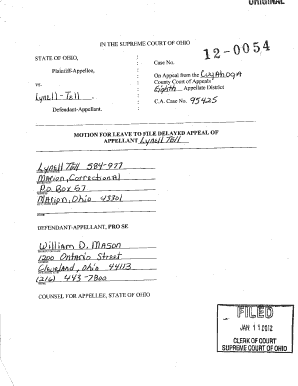 ORIGINAL
IN THE SUPREME COURT OF OHIO
12-0054
STATE OF OHIO,
Plaintiff-Appellee,
vs.
Lynell-Tell
Defendant-Appellant.
Case No.
On Appeal from the Cuyahoga
County Court of Appeals
Eighth Appellate District
C.A. Case No. 95425
MOTION FOR LEAVE TO FILE DELAYED APPEAL OF
APPELLANT Lynell Tell
Lynell Tell 584-977
Marion, Correctional
P.O Box 57
Marion, Ohio 43301
DEFENDANT-APPELLANT, PRO SE
William D. Mason
1200 Ontario Street
Cleveland, Ohio 44113
(216) 443-7800
COUNSEL FOR APPELLEE, STATE OF OHIO
FILED
JAN 2012
CLERK OF COURT
SUPREME COURT OF OHIO